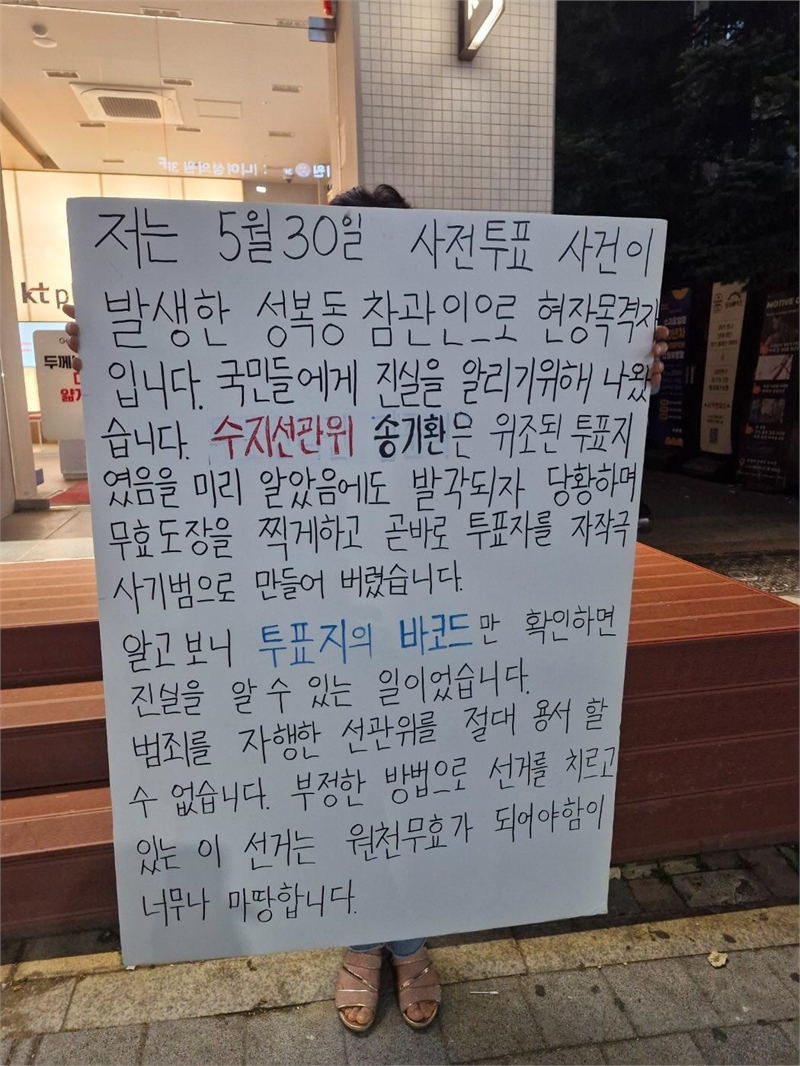 저는 5월 30일 사전투표 사건이
발생한 성복동 참관인으로 현장목격자
입니다. 국민들에게 진실을 알리기위해 나왔
습니다. 수지선관위 송기환은 위조된 투표지
였음을 미리 알았음에도 발각되자 당황하며
무효도장을 찍게하고 곧바로 투표자를 자작극
사기범으로 만들어 버렸습니다.
알고보니 투표지의 바코드만 확인하면
진실을 알 수 있는 일이었습니다.
범죄를 자행한 선관위를 절대 용서 할
수 없습니다. 부정한 방법으로 선거를 치르고
있는 이 선거는 원천무효가 되어야함이
너무나 마땅합니다.
kt p
두께